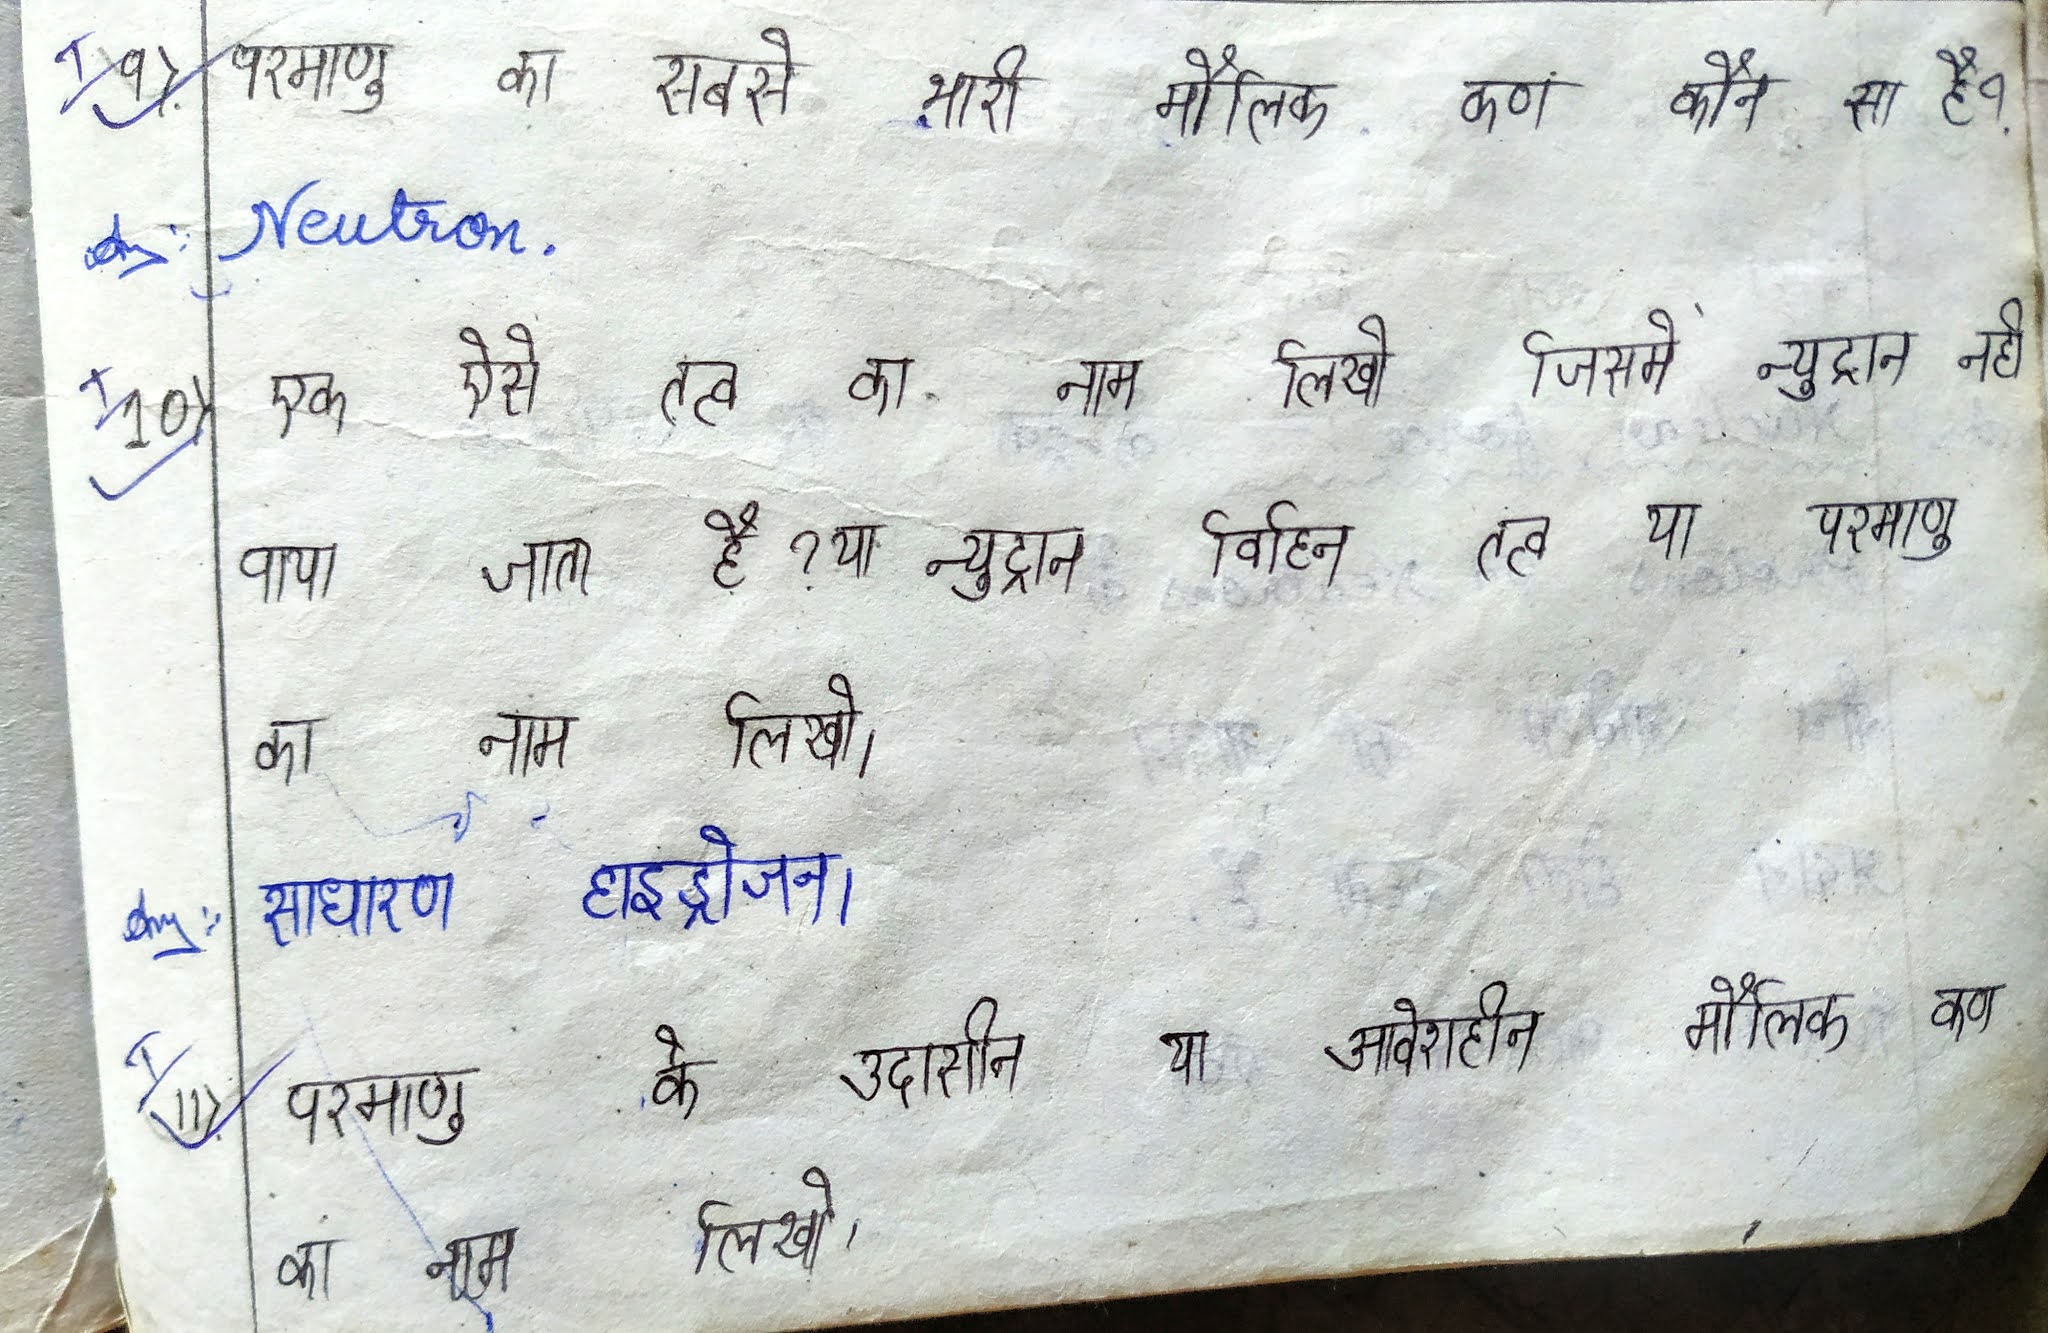 9). परमाणु का सबसे भारी मौलिक कण कौन सा है?
Ans: Neutron.
10) एक ऐसे तत्व का नाम लिखो जिसमें न्युट्रान नही
पाया जाता है? या न्युट्रान विहिन तत्व या परमाणु
का नाम लिखो।
Ans: साधारण हाइड्रोजन।
11). परमाणु के उदासीन या आवेशहीन मौलिक कण
का नाम लिखो।